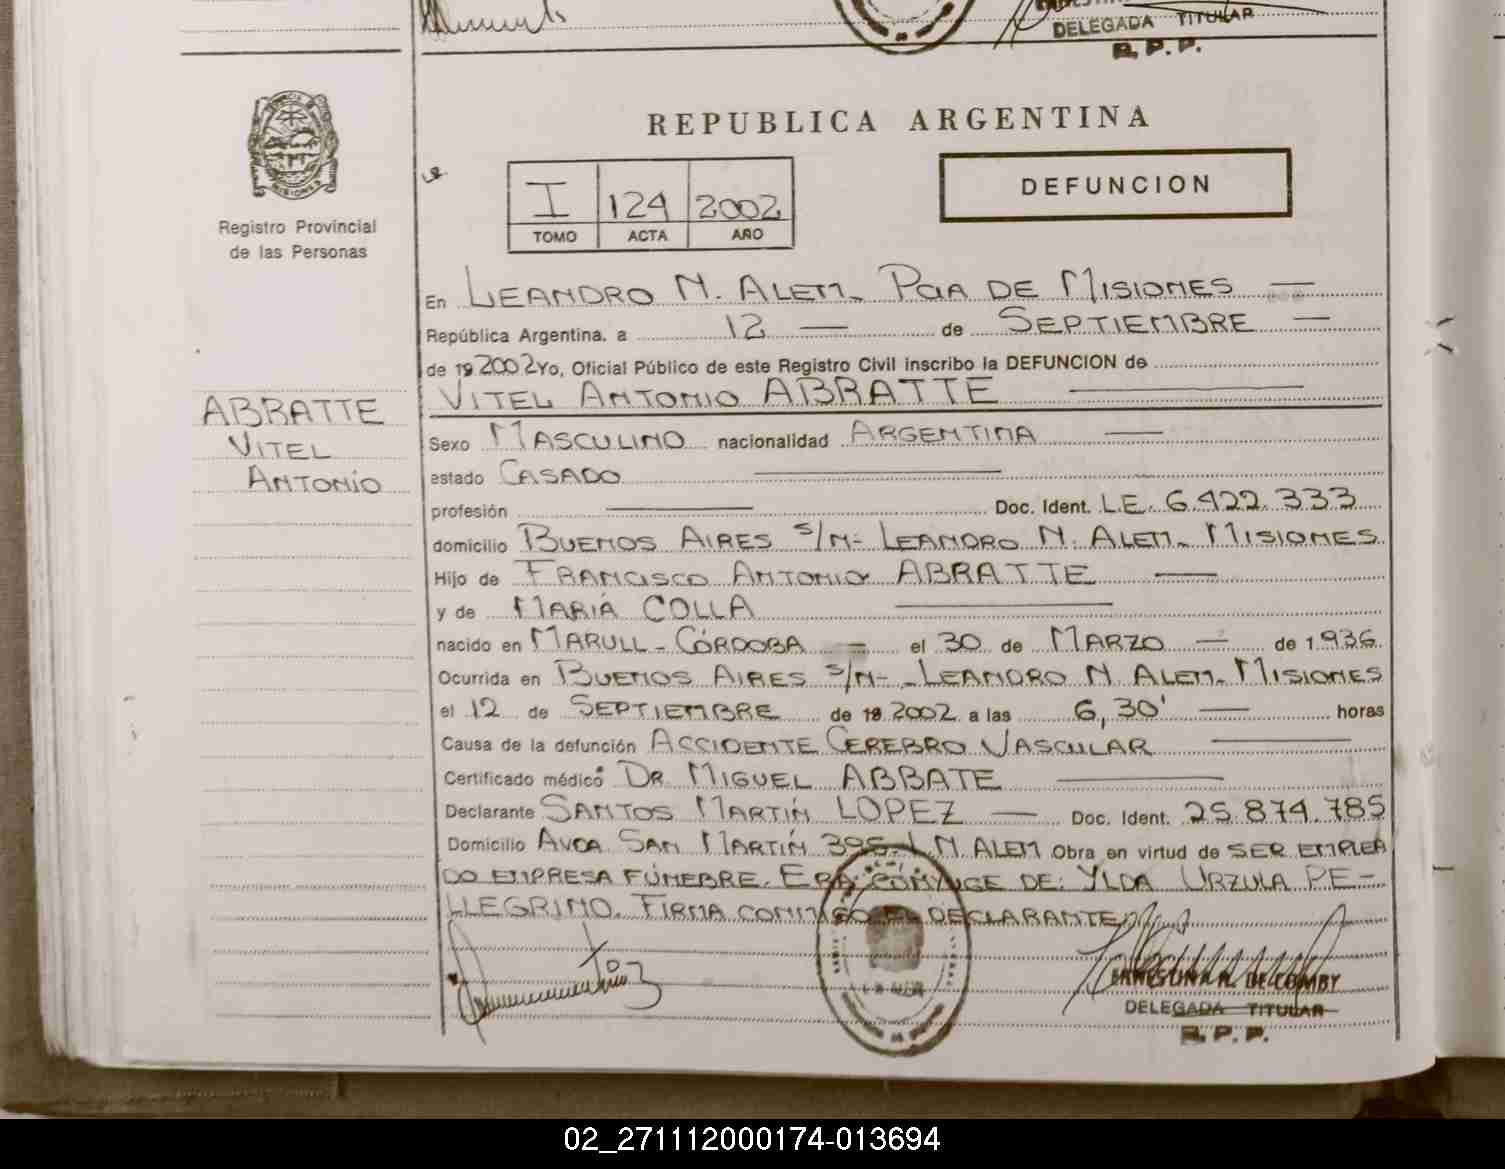 DELEGADA TITULAR
R. P. P.
REPUBLICA ARGENTINA
I 124 2002
TOMO ACTA AÑO
DEFUNCION
Registro Provincial
de las Personas
En LEANDRO N. ALEM. PCIA DE MISIONES —
República Argentina, a 12 — de SEPTIEMBRE —
de 19 2002 Yo, Oficial Público de este Registro Civil inscribo la DEFUNCION de
VITEL ANTONIO ABRATTE
ABRATTE
VITEL
ANTONIO
Sexo MASCULINO nacionalidad ARGENTINA —
estado CASADO —
profesión — Doc. Ident. L.E. 6.422.333
domicilio BUENOS AIRES S/N- LEANDRO N. ALEM. MISIONES
Hijo de FRANCISCO ANTONIO ABRATTE —
y de MARIA COLLA —
nacido en MARULL - CÓRDOBA — el 30 de MARZO — de 1.936
Ocurrida en BUENOS AIRES S/N- LEANDRO N. ALEM. MISIONES
el 12 de SEPTIEMBRE de 19 2002 a las 6,30' — horas
Causa de la defunción ACCIDENTE CEREBRO VASCULAR —
Certificado médico DR. MIGUEL ABBATE —
Declarante SANTOS MARTÍN LOPEZ — Doc. Ident. 25.874.785
Domicilio AVDA SAN MARTÍN 395- L.N. ALEM Obra en virtud de SER EMPLEA
DO EMPRESA FÚNEBRE. ERA CONYUGE DE: YLDA URZULA PE-
LLEGRINO. FIRMA CONMIGO EL DECLARANTE
DE COMBY
DELEGADA TITULAR
R. P. P.
02_271112000174-013694